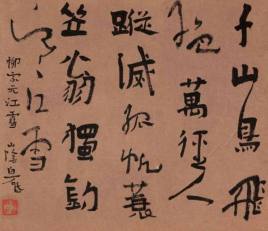 千山鳥飛
絶萬徑人
蹤滅孤帆蓑
笠翁獨釣
寒江雪
柳宗元江雪
山陰